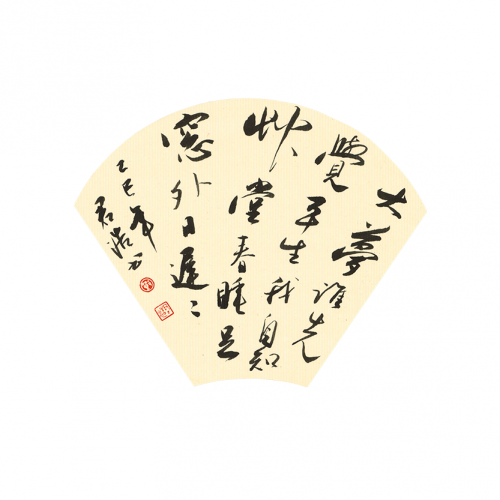 大夢誰先
覺平生我自知
艸堂春睡足
窓外日遲〻
乙巳年
君浩书